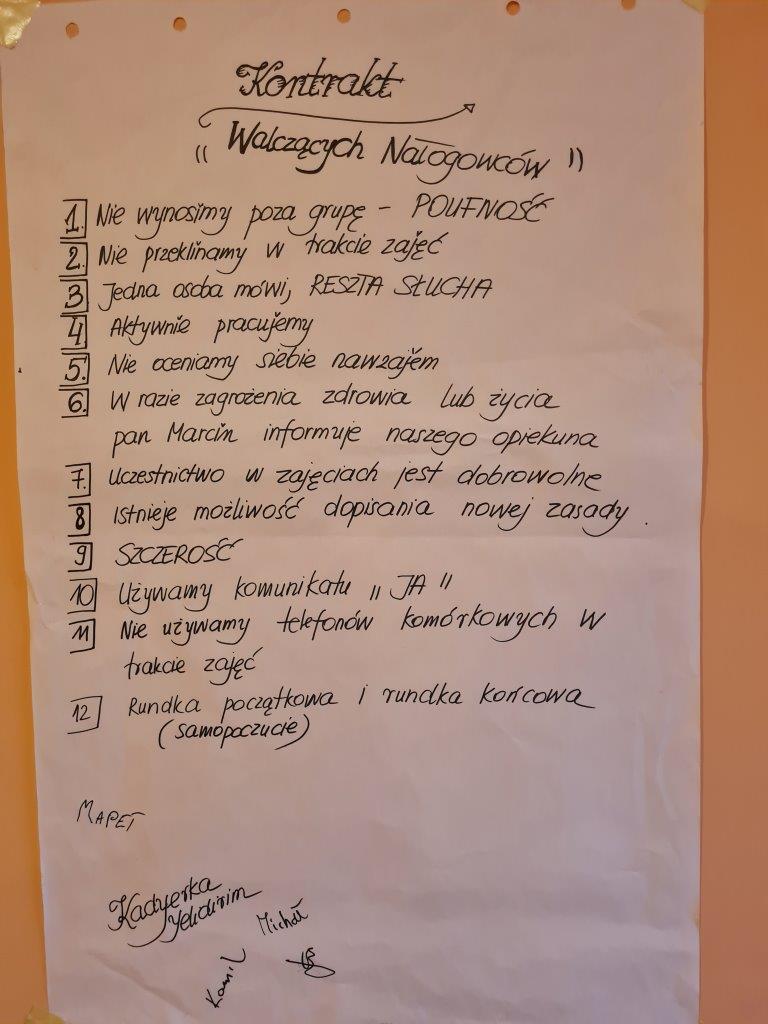 Kontrakt
"Walczących Nałogowców"
1. Nie wynosimy poza grupę - POUFNOŚĆ
2. Nie przeklinamy w trakcie zajęć
3 Jedna osoba mówi, RESZTA SŁUCHA
4 Aktywnie pracujemy
5. Nie oceniamy siebie nawzajem
6. W razie zagrożenia zdrowia lub życia
pan Marcin informuje naszego opiekuna
7. Uczestnictwo w zajęciach jest dobrowolne
8 Istnieje możliwość dopisania nowej zasady.
9 SZCZEROŚĆ
10 Używamy komunikatu „JA"
11 Nie używamy telefonów komórkowych w
trakcie zajęć
12 Rundka początkowa i rundka końcowa
(samopoczucie)
MAPET
Kadyerka
Yeldirim
Michał
Kamil